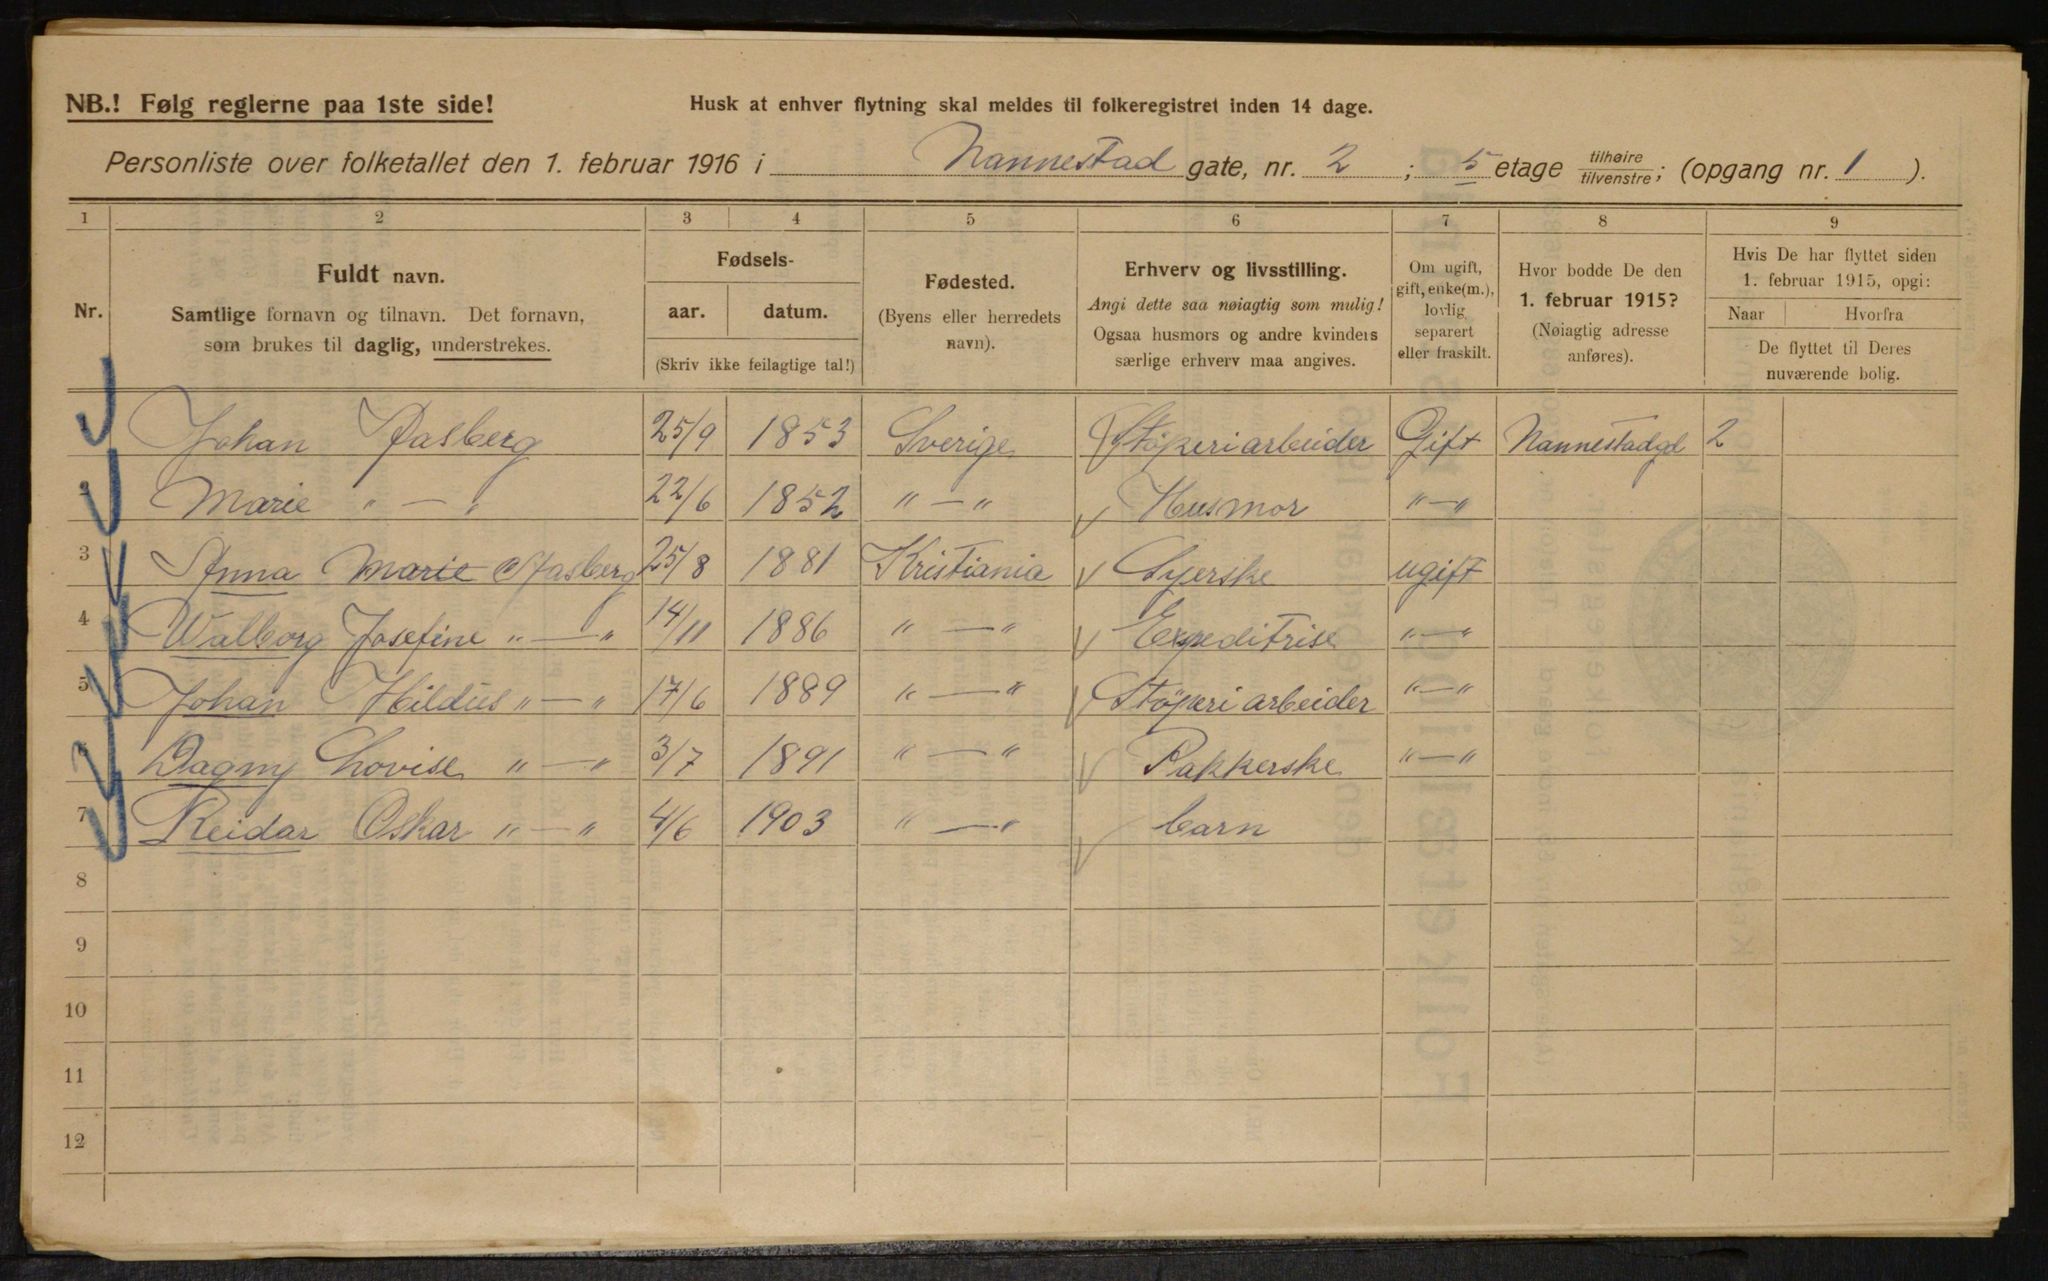 NB.! Følg reglerne paa 1ste side!
Husk at enhver flytning skal meldes til folkeregistret inden 14 dage.
Personliste over folketallet den 1. februar 1916 i Nannestad gate, nr. 2 ; 5 etage tilhøire tilvenstre; (opgang nr. 1 ).
1 2 3 4 5 6 7 8 9
Nr.
Fuldt navn.
Samtlige fornavn og tilnavn. Det fornavn,
som brukes til daglig, understrekes.
Fødsels-
aar. datum.
(Skriv ikke feilagtige tal!)
Fødested.
(Byens eller herredets
navn).
Erhverv og livsstilling.
Angi dette saa nøiagtig som mulig!
Ogsaa husmors og andre kvinders
særlige erhverv maa angives.
Om ugift,
gift, enke(m.),
lovlig
separert
eller fraskilt.
Hvor bodde De den
1. februar 1915?
(Nøiagtig adresse
anføres).
Hvis De har flyttet siden
1. februar 1915, opgi:
Naar Hvorfra
De flyttet til Deres
nuværende bolig.
Johan 25/9 1853 Sverige Stöperiarbeider Gift Nannestadgt 2
2 Marie " — " 22/6 1852 " — " Husmor " — "
3 Anna Marie 25/8 1881 Kristiania Syerske ugift
4 Walborg Josefine " — " 14/11 1886 " — " Expeditrise " — "
5 Johan Hildus " — " 17/6 1889 " — " Stöperiarbeider " — "
Dagny Lovise " — " 3/7 1891 " — " Pakkerske " — "
7 Reidar Oskar " — " 4/6 1903 " — " barn
8
9
10
11
12